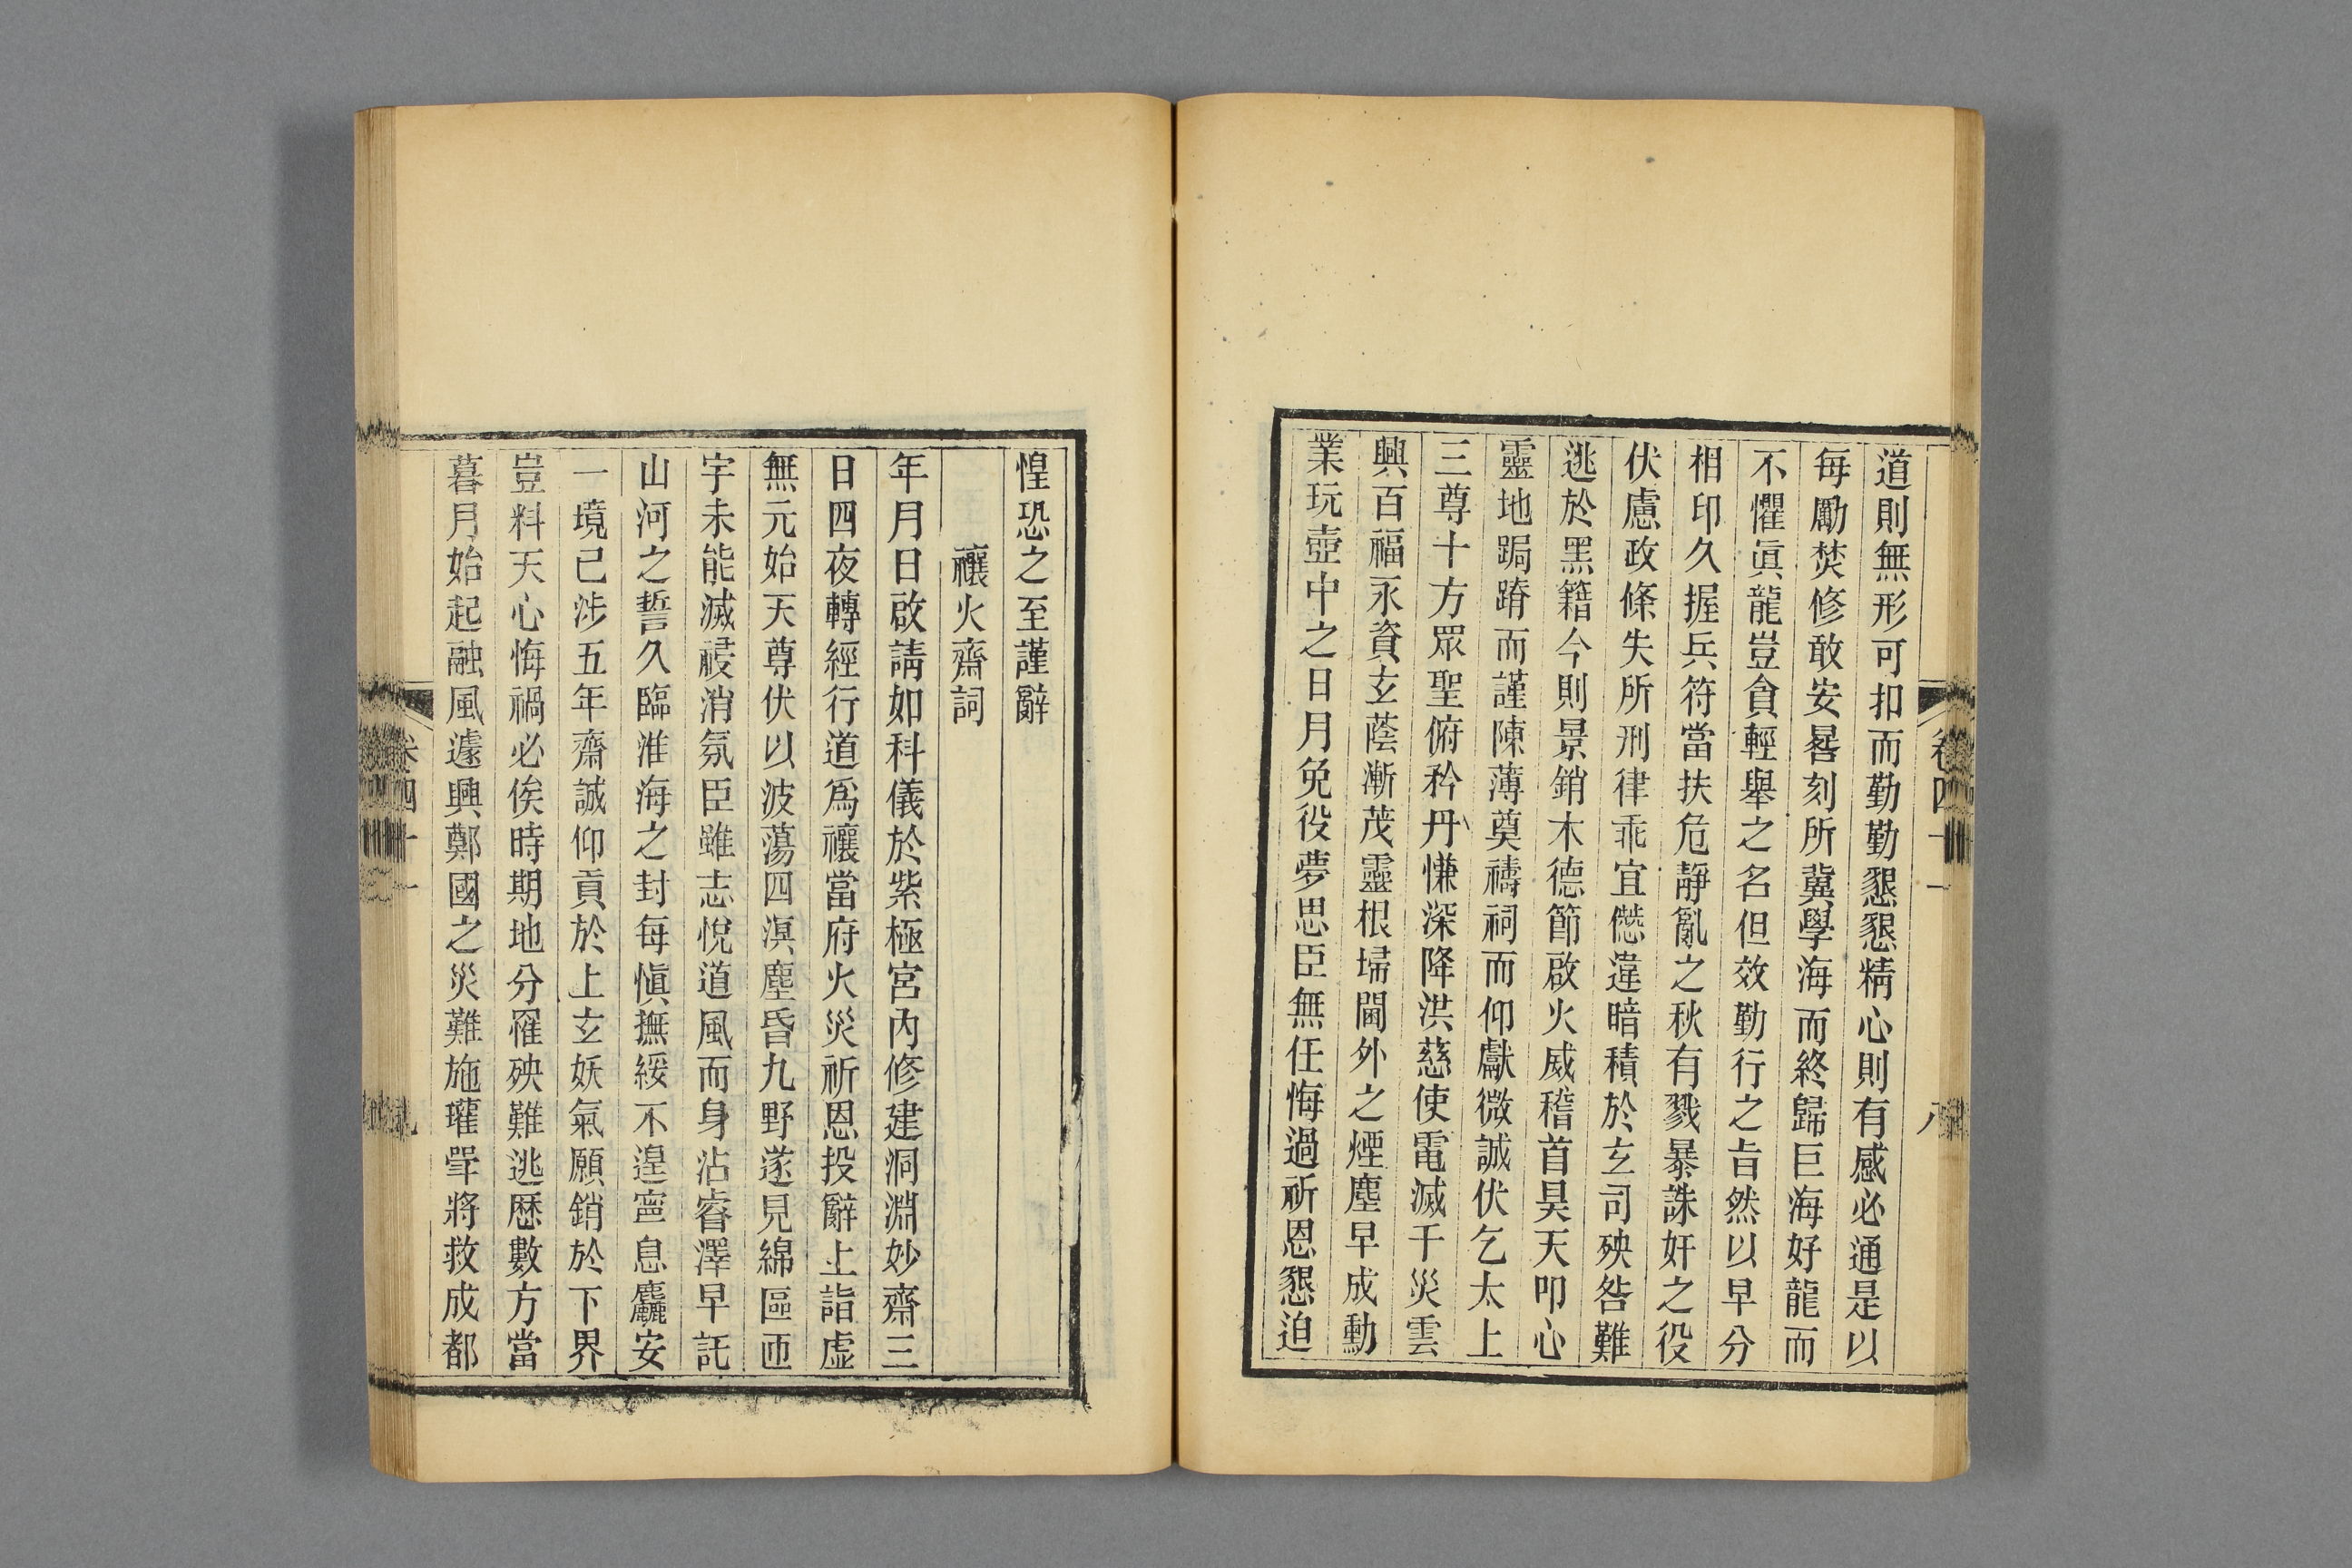 道則無形可扣而勤勤懇懇精心則有感必通是以
每勵焚修敢安晷刻所冀學海而終歸巨海好龍而
不懼眞龍豈貪輕舉之名但效勤行之㫖然以早分
相印久握兵符當扶危靜亂之秋有戮暴誅奸之役
伏慮政條失所刑律乖宜僽違暗積於玄司殃咎難
逃於黑籍今則景銷木德節啟火威稽首昊天叩心
靈地跼蹐而謹陳薄奠禱祠而仰獻微誠伏乞太上
三尊十方眾聖俯矜丹慊深降洪慈使電滅千災雲
興百福永資玄蔭漸茂靈根埽閫外之煙塵早成勳
業玩壺中之日月免役夢思臣無任悔過祈恩懇迫
卷四十一
八
惶恐之至謹辭
禳火齋詞
年月日啟請如科儀於紫極宮內修建洞淵妙齋三
日四夜轉經行道爲禳當府火災祈恩投辭上詣虛
無元始天尊伏以波蕩四溟塵昏九野遂見綿區匝
宇未能滅祲消氛臣雖志悅道風而身沾睿澤早託
山河之誓久臨淮海之封每愼撫綏不遑寧息麤安
一境已涉五年齋誠仰貢於上玄妖氣願銷於下界
豈料天心悔禍必俟時期地分罹殃難逃厯數方當
暮月始起融風遽興鄭國之災難施瓘斝將救成都
卷四十一
九